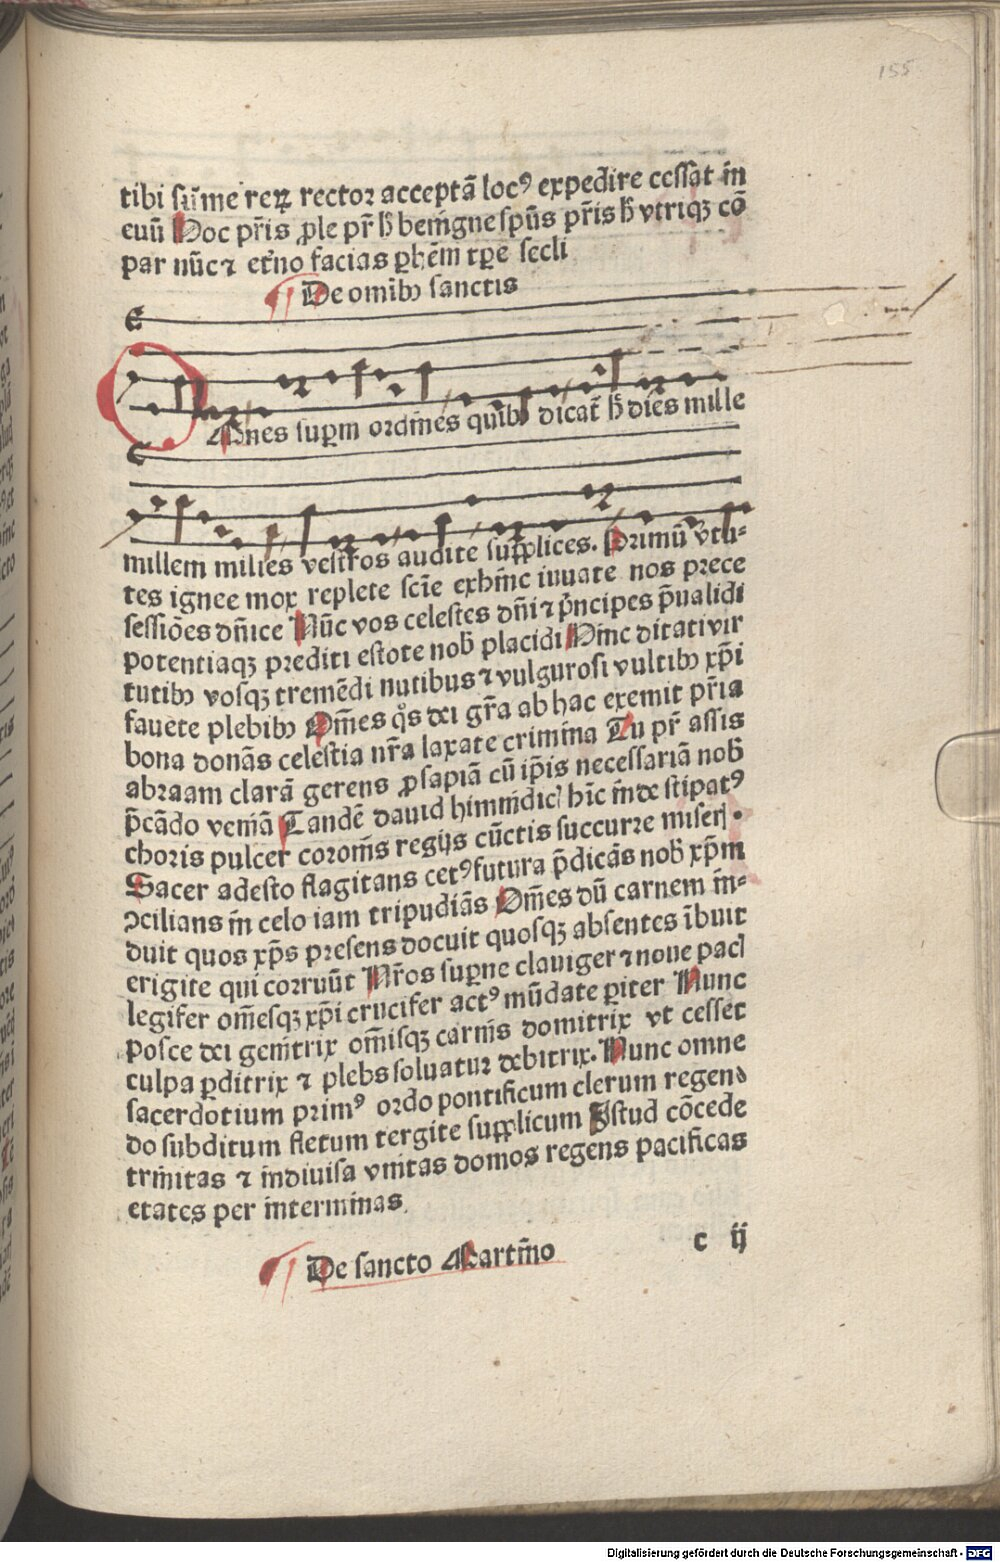 155
tibi sũme reꝝ rector acceptã locꝰ expedire cessat in
euũ Hoc pr̃is ꝓle pr̃ h̃ benigne spũs pr̃is h̃ vtriqꝫ cõ
par nũc ⁊ et̃no facias ꝑhẽm tꝑe secli
¶ De omibꝫ sanctis
Omnes supꝑm ordines quibꝫ dicat̃ h̃ dies mille
millem milies vestros audite supplices. Primũ v̾tu⸗
tes ignee mox replete scĩe exhinc iuuate nos prece
sessiões dñice Nũc vos celestes dñi ⁊ p̾ncipes p̃ualidi
potentiaqꝫ prediti estote nob̃ placidi Hinc ditati vir
tutibꝫ vosqꝫ tremẽdi nutibus ⁊ vulgurosi vultibꝫ xp̃i
fauete plebibꝫ Om̃es qͦs dei gr̃a ab hac exemit pr̃ia
bona donãs celestia nr̃a laxate crimina Tu pr̃ assis
abraam clarã gerens ꝓsapiã cũ ip̃is necessariã nob̃
p̃cãdo veniã Tandẽ dauid himnidicꝰ hĩc inde stipatꝰ
choris pulcer coronis regijs cũctis succurre miseris.
Sacer adesto flagitans cetꝰ futura p̃dicãs nob̃ xp̃m
ꝯcilians in celo iam tripudiãs Om̃es dũ carnem in⸗
duit quos xp̃s presens docuit quosqꝫ absentes ĩbuit
erigite qui corruũt Nr̃os suꝑne clauiger ⁊ noue pacis
legifer om̃esqꝫ xp̃i crucifer actꝰ mũdate ꝑiter Nunc
posce dei genitrix om̃isqꝫ carnis domitrix vt cesset
culpa ꝑditrix ⁊ plebs soluatur debitrix. Nunc omne
sacerdotium primꝰ ordo pontificum clerum regen⸗
do subditum fletum tergite supplicum Istud cõcede
trinitas ⁊ indiuisa vnitas domos regens pacificas
etates per interminas
c ij
¶ De sancto Martino
Digitalisierung gefördert durch die Deutsche Forschungsgemeinschaft - DFG